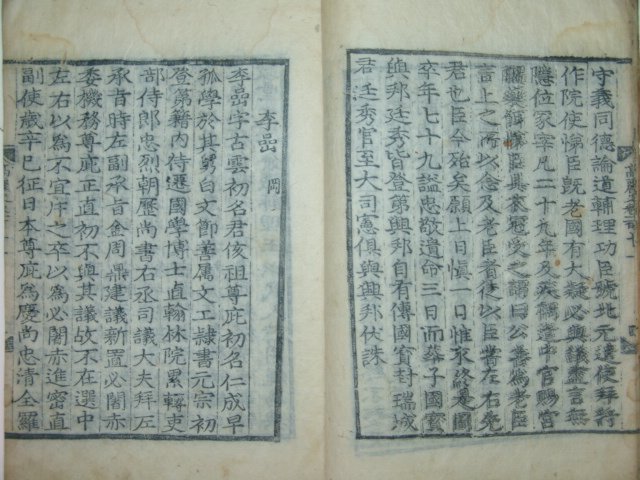 守義同德論道輔理功臣號北元遣使拜將
作院使悌臣旣老國有大疑必與議盡言無
隱位冢宰凡二十九年及疾禑遣中官賜宮
醞藥餌悌臣具衣冠受之謂曰公善爲老臣
言上之所以念及老臣者徒以臣嘗左右先
君也臣今殆矣願上日愼一日惟永終是圖
卒年七十九謚忠敬遺命三日而葬子國寶
興邦廷秀皆登第興邦自有傳國寶封瑞城
君廷秀官至大司憲俱與興邦伏誅
李嵒 岡
李嵒字古雲初名君侅祖尊庇初名仁成早
孤學於其舅白文節善屬文工隷書元宗初
登第籍內侍遷國學博士直翰林院累轉吏
部侍郎忠烈朝歷尚書右丞司議大夫拜左
承旨時左副承旨金周鼎建議新置必闍赤
委機務尊庇正直初不與其議故不在選中
左右以爲不宜斥之卒以爲必闍赤進密直
副使歲辛巳征日本尊庇爲慶尚忠清全羅